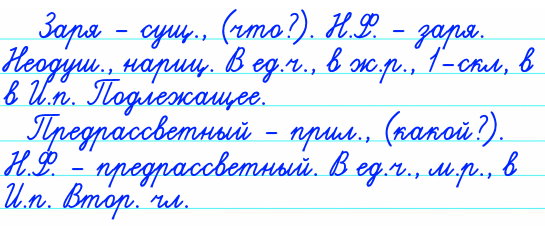 Заря – сущ., (что?). Н.Ф. – заря.
Неодуш., нариц. В ед.ч., в ж.р., 1-скл, в
в И.п. Подлежащее.
Предрассветный – прил., (какой?).
Н.Ф. – предрассветный. В ед.ч., м.р., в
И.п. Втор. чл.